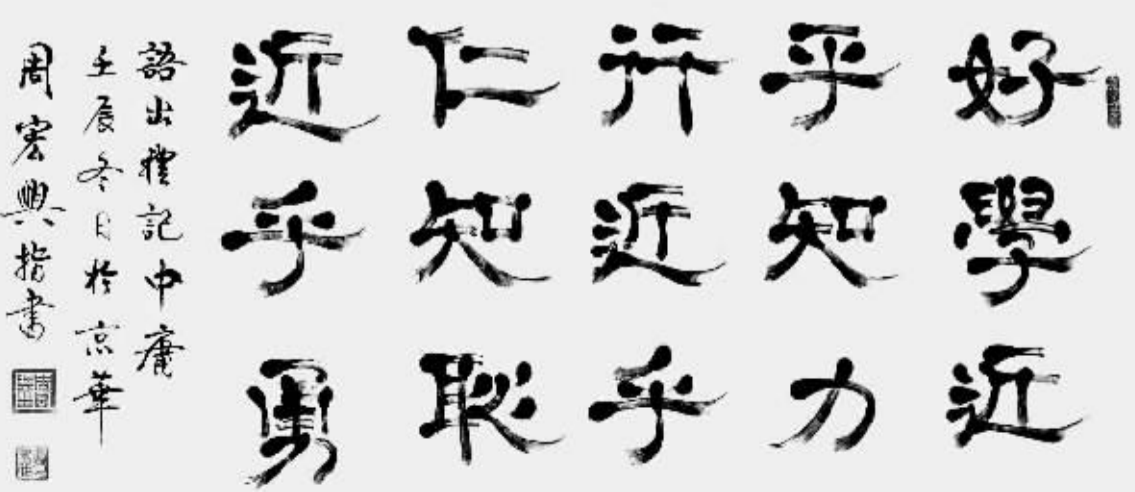 好學近
乎知力
行近乎
仁知耻
近乎勇
語出禮記中庸
壬辰冬日於京華
周宏興指書